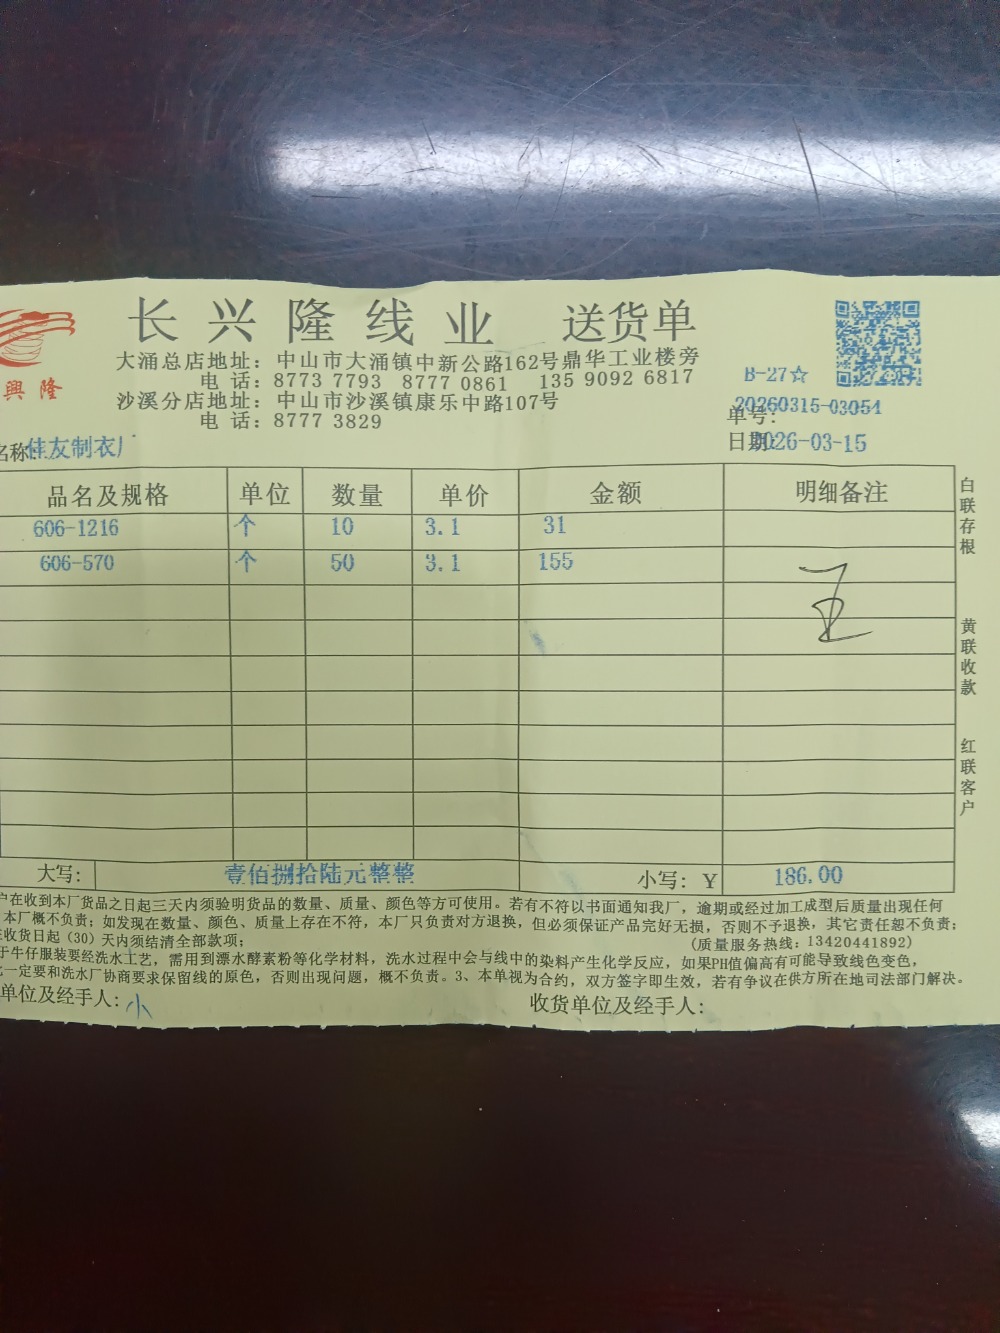 長 兴 隆 线 业 送货单
興 隆
大涌总店地址：中山市大涌镇中新公路162号鼎华工业楼旁
电 话：8773 7793 8777 0861 135 9092 6817
沙溪分店地址：中山市沙溪镇康乐中路107号
电 话：8777 3829
B-27☆
单号：20260315-03054
名称：佳友制衣厂
日期：2026-03-15
品名及规格 单位 数量 单价 金额 明细备注
606-1216 个 10 3.1 31
606-570 个 50 3.1 155
白联存根
黄联收款
红联客户
大写： 壹佰捌拾陆元整整 小写：￥ 186.00
户在收到本厂货品之日起三天内须验明货品的数量、质量、颜色等方可使用。若有不符以书面通知我厂，逾期或经过加工成型后质量出现任何
，本厂概不负责；如发现在数量、颜色、质量上存在不符，本厂只负责对方退换，但必须保证产品完好无损，否则不予退换，其它责任恕不负责；
收货日起（30）天内须结清全部款项； （质量服务热线：13420441892）
于牛仔服装要经洗水工艺，需用到漂水酵素粉等化学材料，洗水过程中会与线中的染料产生化学反应，如果PH值偏高有可能导致线色变色，
一定要和洗水厂协商要求保留线的原色，否则出现问题，概不负责。3、本单视为合约，双方签字即生效，若有争议在供方所在地司法部门解决。
单位及经手人：小 收货单位及经手人：